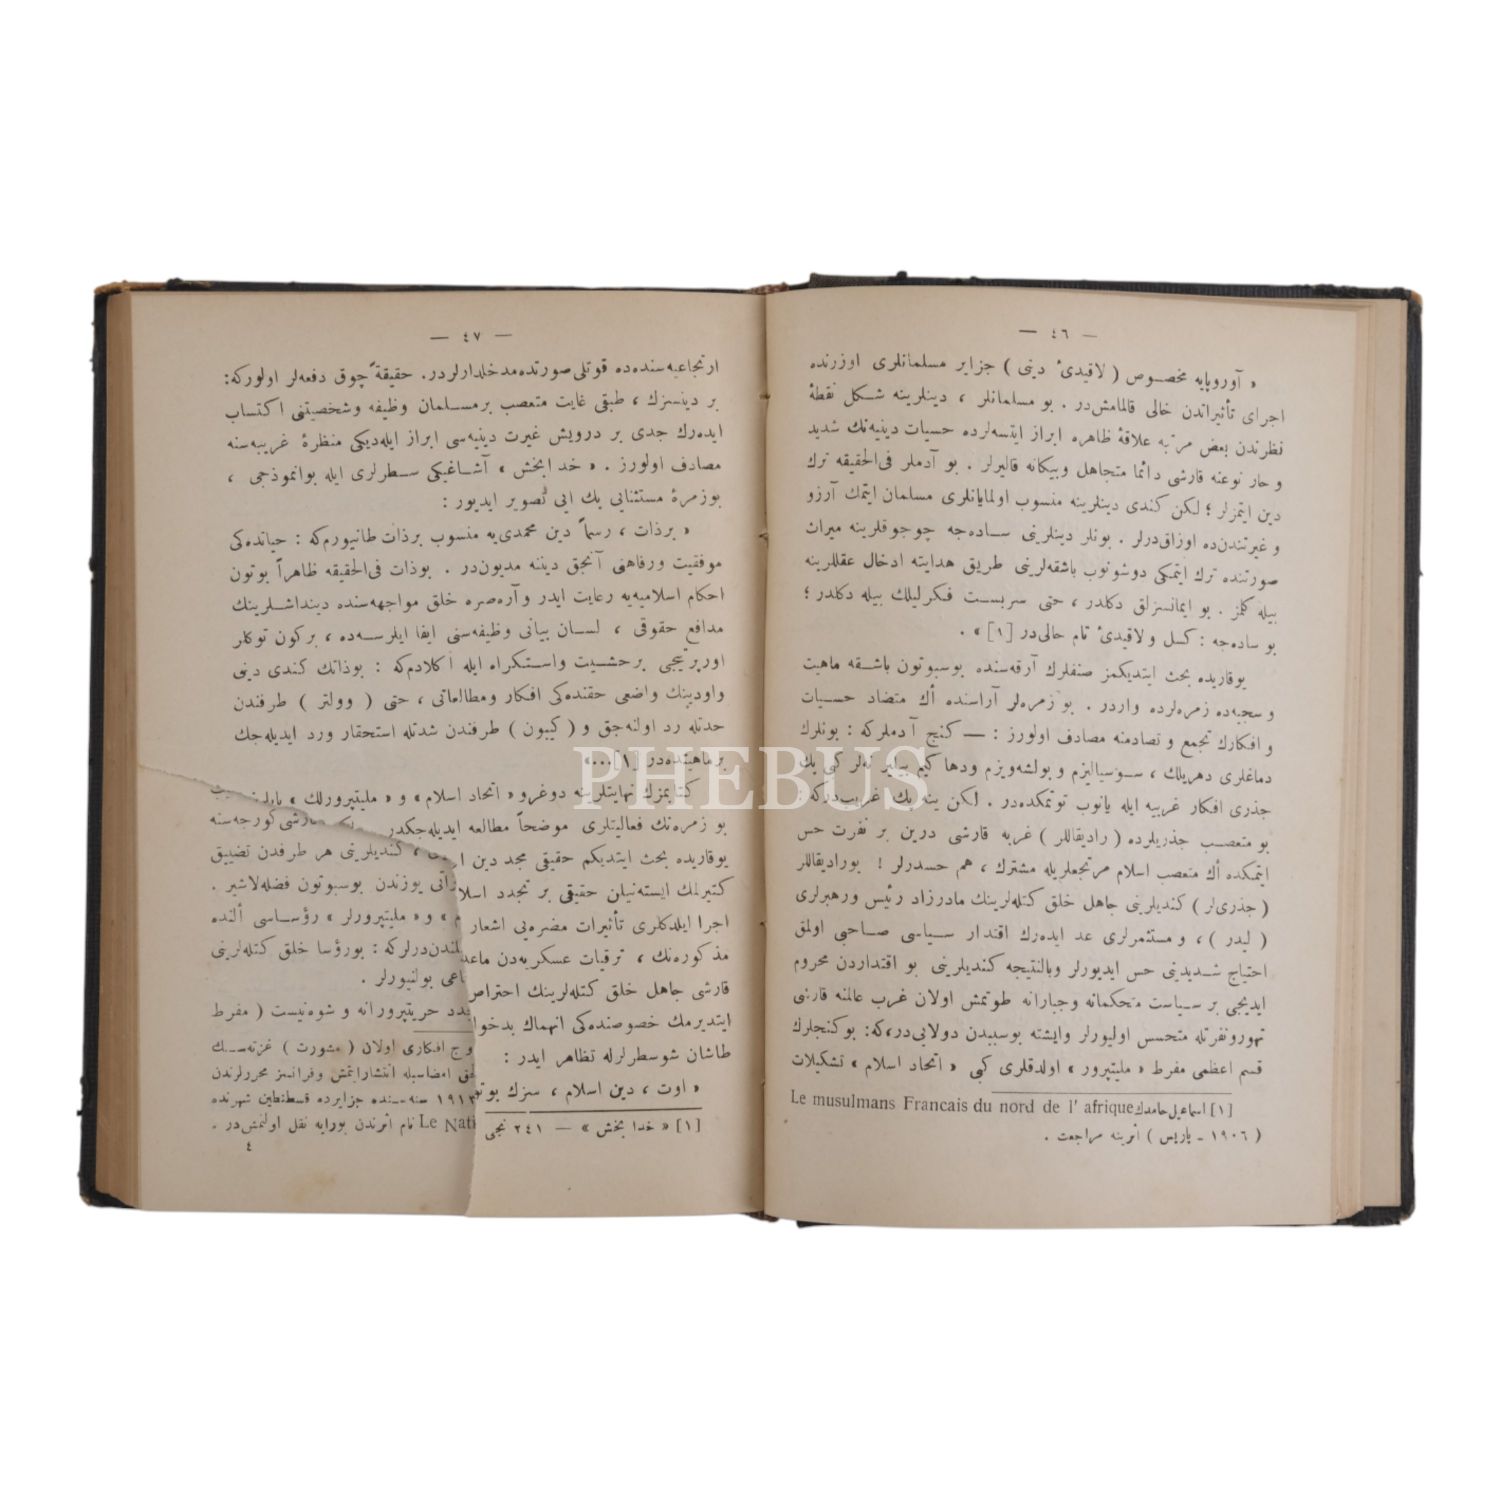 — ٤٦ —
« آوروپایه مخصوص ( لاقیدئ دینی ) جزایر مسلمانلری اوزرنده
اجرای تأثیراتدن خالی قالمامش‌در . بو مسلمانلر ، دینلرینه شکل نقطهٔ
نظرندن بعض مرتبه علاقهٔ ظاهره ابراز ایتسه‌لرده حسیات دینیه‌نك شدید
و حار نوعنه قارشی دائما متجاهل وبیکانه قالیرلر . بو آدملر فی‌الحقیقه ترك
دین ایتمزلر ؛ لکن کندی دینلرینه منسوب اولمایانلری مسلمان ایتمك آرزو
و غیرتندن‌ده اوزاق‌درلر . بونلر دینلرینی ساده‌جه چوجوقلرینه میراث
صورتنده ترك ایتمکی دوشونوب باشقه‌لرینی طریق هدایته ادخال عقللرینه
بیله کلمز . بو ایمانسزلق دکلدر ، حتی سربست فکرلیلك بیله دکلدر ؛
بو ساده‌جه : کسل و لاقیدئ تام حالی‌در [١] » .
یوقاریده بحث ایتدیکمز صنفلرك آرقه‌سنده بوسبوتون باشقه ماهیت
و سجیه‌ده زمره‌لرده واردر . بو زمره‌لر آراسنده اڭ متضاد حسیات
و افکارك تجمع و تصادمنه مصادف اولورز : — کنج آدملرکه : بونلرك
دماغلری دهریلك ، سوسیالیزم و بولشه‌ویزم ودها کیم بیلیر نه‌لر کبی پك
جذری افکار غربیه ایله یانوب توتمکده‌در . لکن ینه پك غریب‌درکه :
بو متعصب جذریلرده ( رادیقاللر ) غربه قارشی درین بر نفرت حس
ایتمکده اڭ متعصب اسلام مرتجعلریله مشترك ، هم حسدرلر ! بورادیقاللر
( جذری‌لر ) کندیلرینی جاهل خلق کتله‌لرینك مادرزاد رئیس ورهبرلری
( لیدر ) ، و مستثمرلری عد ایده‌رك اقتدار سیاسی صاحبی اولمق
احتیاج شدیدینی حس ایدیورلر وبالنتیجه کندیلرینی بو اقتداردن محروم
ایدیجی بر سیاست متحکمانه وجبارانه طوتمش اولان غرب عالمنه قارشی
تهورونفرتله متحسس اولیورلر وایشته بوسببدن دولایی‌درکه: بوکنجلرك
قسم اعظمی مفرط « ملیتپرور » اولدقلری کبی « اتحاد اسلام » تشکیلات
[١] اسماعیل حامدك Le musulmans Francais du nord de l' afrique
( ١٩٠٦ - پاریس ) اثرینه مراجعت .
— ٤٧ —
ارتجاعیه‌سنده‌ده قوتلی صورتده مدخلدارلردر. حقیقةً چوق دفعه‌لر اولورکه:
بر دینسزك ، طبقی غایت متعصب برمسلمان وظیفه وشخصیتنی اکتساب
ایده‌رك جدی بر درویش غیرت دینیه‌سی ابراز ایله‌دیکی منظرهٔ غریبه‌سنه
مصادف اولورز . « خدا بخش » آشاغیکی سطرلری ایله بوانموذجی ،
بوزمرهٔ مستثنایی پك ایی تصویر ایدیور :
« برذات ، رسماً دین محمدی‌یه منسوب برذات طانیورم‌که : حیاتده‌کی
موفقیت ورفاهنی آنجق دیننه مدیون‌در . بوذات فی‌الحقیقه ظاهراً بوتون
احکام اسلامیه‌یه رعایت ایدر وآره‌صره خلق مواجهه‌سنده دینداشلرینك
مدافع حقوقی ، لسان بیانی وظیفه‌سنی ایفا ایلرسه‌ده ، برکون توکلر
اورپرتیجی برحشیت واستکراه ایله آکلادم‌که : بوذاتك کندی دینی
واودینك واضعی حقنده‌کی افکار ومطالعاتی ، حتی ( وولتر ) طرفندن
حدتله رد اولنه‌جق و ( کیبون ) طرفندن شدتله استحقار ورد ایدیله‌جك
برماهیتده‌در [١]...»
کتابمزك نهایتلرینه دوغرو « اتحاد اسلام » و « ملیتپرورلك »
بو زمره‌نك فعالیتلری موضحاً مطالعه ایدیله‌جکدر
یوقاریده بحث ایتدیکم حقیقی مجدد دین
کتیرلمك ایسته‌نیلن حقیقی بر تجدد اسلا
اجرا ایلدکلری تأثیرات مضره‌یی اشعار
مذکوره‌نك ، ترقیات عسکریه‌دن ماعد
قارشی جاهل خلق کتله‌لرینك احتراص
ایتدیرمك خصوصنده‌کی انهماك بدخوا
طاشان شوسطرلرله تظاهر ایدر :
« اوت ، دین اسلام ، سزك بوتو
[١] « خدا بخش » — ٢٤١ نجی
قارشی کورجه‌سنه
، کندیلرینی هر طرفدن تضییق
یوزندن بوسبوتون فضله‌لاشیر .
« و « ملیتپرورلر » رؤساسی ألنده
لندن‌درلرکه : بورؤسا خلق کتله‌لرینی
بولنیورلر .
حریتپرورانه و شوه‌نیست ( مفرط
افکاری اولان ( مشورت ) غزته‌سنك
امضاسیله انتشارایتمش وفرانسز محررلرندن
١٩١٣ سنه‌سنده جزایرده قسطنطین شهرنده
Le Nati نام اثرندن بورایه نقل اولنمش‌در .
٤
PHEBUS